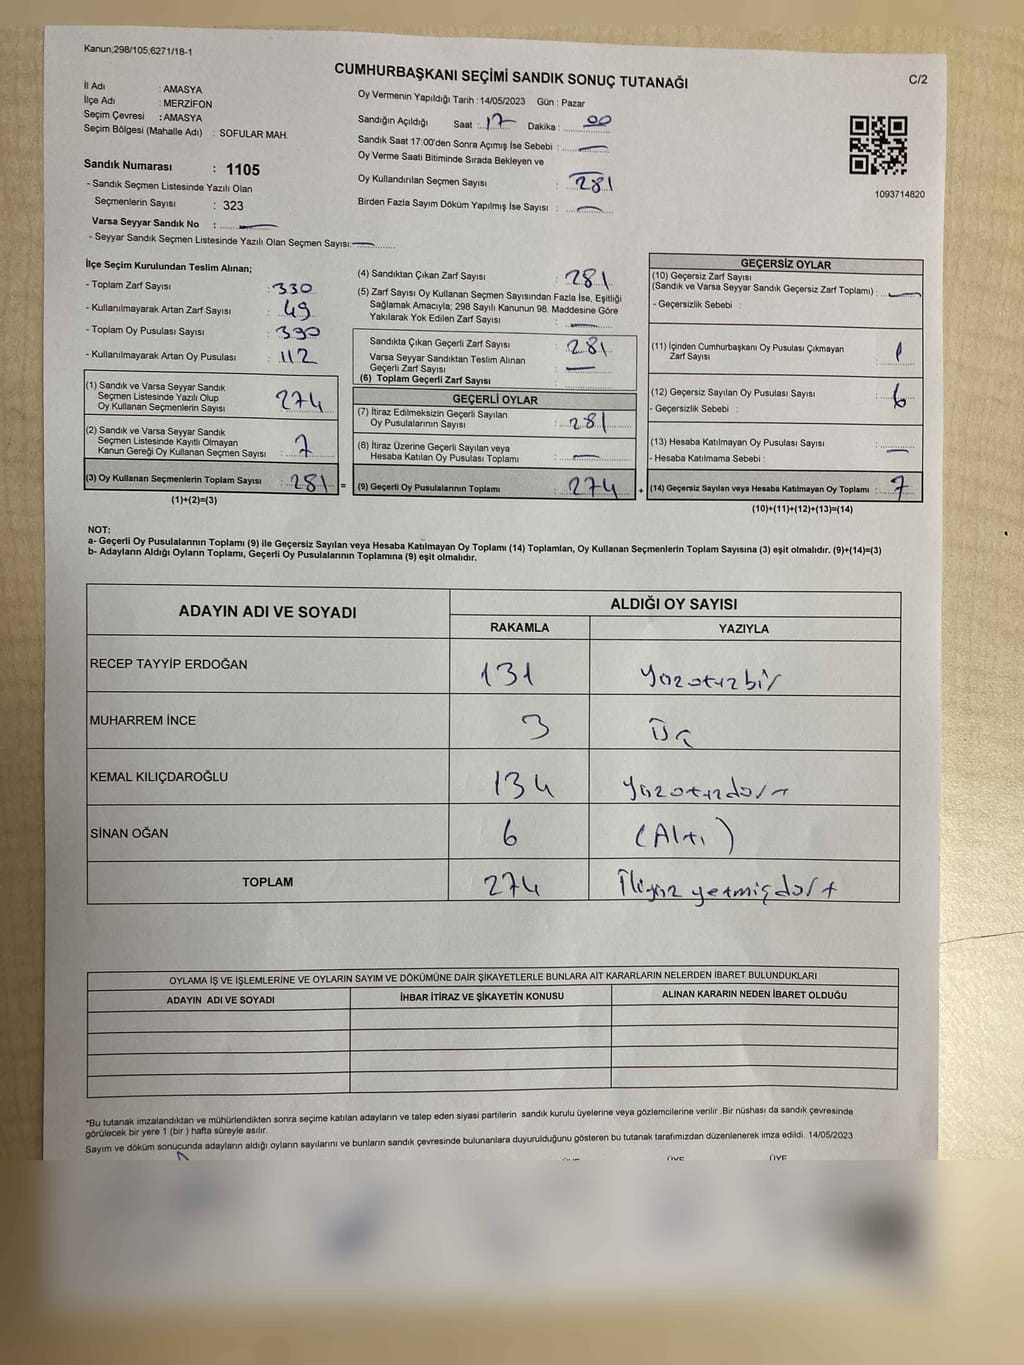 Kanun;298/105;6271/18-1
C/2
CUMHURBAŞKANI SEÇİMİ SANDIK SONUÇ TUTANAĞI
İl Adı : AMASYA
İlçe Adı : MERZİFON
Seçim Çevresi : AMASYA
Seçim Bölgesi (Mahalle Adı) : SOFULAR MAH.
Sandık Numarası : 1105
- Sandık Seçmen Listesinde Yazılı Olan
Seçmenlerin Sayısı : 323
Varsa Seyyar Sandık No :
- Seyyar Sandık Seçmen Listesinde Yazılı Olan Seçmen Sayısı:
Oy Vermenin Yapıldığı Tarih : 14/05/2023 Gün : Pazar
Sandığın Açıldığı Saat : 17 Dakika : 00
Sandık Saat 17:00'den Sonra Açımış İse Sebebi :
Oy Verme Saati Bitiminde Sırada Bekleyen ve
Oy Kullandırılan Seçmen Sayısı : 281
Birden Fazla Sayım Döküm Yapılmış İse Sayısı :
1093714820
İlçe Seçim Kurulundan Teslim Alınan;
- Toplam Zarf Sayısı : 330
- Kullanılmayarak Artan Zarf Sayısı : 49
- Toplam Oy Pusulası Sayısı : 330
- Kullanılmayarak Artan Oy Pusulası : 112
(1) Sandık ve Varsa Seyyar Sandık
Seçmen Listesinde Yazılı Olup
Oy Kullanan Seçmenlerin Sayısı : 274
(2) Sandık ve Varsa Seyyar Sandık
Seçmen Listesinde Kayıtlı Olmayan
Kanun Gereği Oy Kullanan Seçmen Sayısı : 7
(3) Oy Kullanan Seçmenlerin Toplam Sayısı : 281 =
(1)+(2)=(3)
(4) Sandıktan Çıkan Zarf Sayısı : 281
(5) Zarf Sayısı Oy Kullanan Seçmen Sayısından Fazla İse, Eşitliği
Sağlamak Amacıyla; 298 Sayılı Kanunun 98. Maddesine Göre
Yakılarak Yok Edilen Zarf Sayısı :
Sandıkta Çıkan Geçerli Zarf Sayısı : 281
Varsa Seyyar Sandıktan Teslim Alınan
Geçerli Zarf Sayısı :
(6) Toplam Geçerli Zarf Sayısı :
GEÇERLİ OYLAR
(7) İtiraz Edilmeksizin Geçerli Sayılan
Oy Pusulalarının Sayısı : 281
(8) İtiraz Üzerine Geçerli Sayılan veya
Hesaba Katılan Oy Pusulası Toplamı :
(9) Geçerli Oy Pusulalarının Toplamı : 274 +
GEÇERSİZ OYLAR
(10) Geçersiz Zarf Sayısı
(Sandık ve Varsa Seyyar Sandık Geçersiz Zarf Toplamı) :
- Geçersizlik Sebebi :
(11) İçinden Cumhurbaşkanı Oy Pusulası Çıkmayan
Zarf Sayısı : 1
(12) Geçersiz Sayılan Oy Pusulası Sayısı : 6
- Geçersizlik Sebebi :
(13) Hesaba Katılmayan Oy Pusulası Sayısı :
- Hesaba Katılmama Sebebi :
(14) Geçersiz Sayılan veya Hesaba Katılmayan Oy Toplamı : 7
(10)+(11)+(12)+(13)=(14)
NOT:
a- Geçerli Oy Pusulalarının Toplamı (9) ile Geçersiz Sayılan veya Hesaba Katılmayan Oy Toplamı (14) Toplamları, Oy Kullanan Seçmenlerin Toplam Sayısına (3) eşit olmalıdır. (9)+(14)=(3)
b- Adayların Aldığı Oyların Toplamı, Geçerli Oy Pusulalarının Toplamına (9) eşit olmalıdır.
ADAYIN ADI VE SOYADI ALDIĞI OY SAYISI
RAKAMLA YAZIYLA
RECEP TAYYİP ERDOĞAN 131 Yüzotuzbir
MUHARREM İNCE 3 Üç
KEMAL KILIÇDAROĞLU 134 Yüzotuzdört
SİNAN OĞAN 6 (Altı)
TOPLAM 274 İkiyüz yetmişdört
OYLAMA İŞ VE İŞLEMLERİNE VE OYLARIN SAYIM VE DÖKÜMÜNE DAİR ŞİKAYETLERLE BUNLARA AİT KARARLARIN NELERDEN İBARET BULUNDUKLARI
ADAYIN ADI VE SOYADI İHBAR İTİRAZ VE ŞİKAYETİN KONUSU ALINAN KARARIN NEDEN İBARET OLDUĞU
*Bu tutanak imzalandıktan ve mühürlendikten sonra seçime katılan adayların ve talep eden siyasi partilerin sandık kurulu üyelerine veya gözlemcilerine verilir .Bir nüshası da sandık çevresinde
görülecek bir yere 1 (bir ) hafta süreyle asılır.
Sayım ve döküm sonucunda adayların aldığı oyların sayılarını ve bunların sandık çevresinde bulunanlara duyurulduğunu gösteren bu tutanak tarafımızdan düzenlenerek imza edildi. 14/05/2023